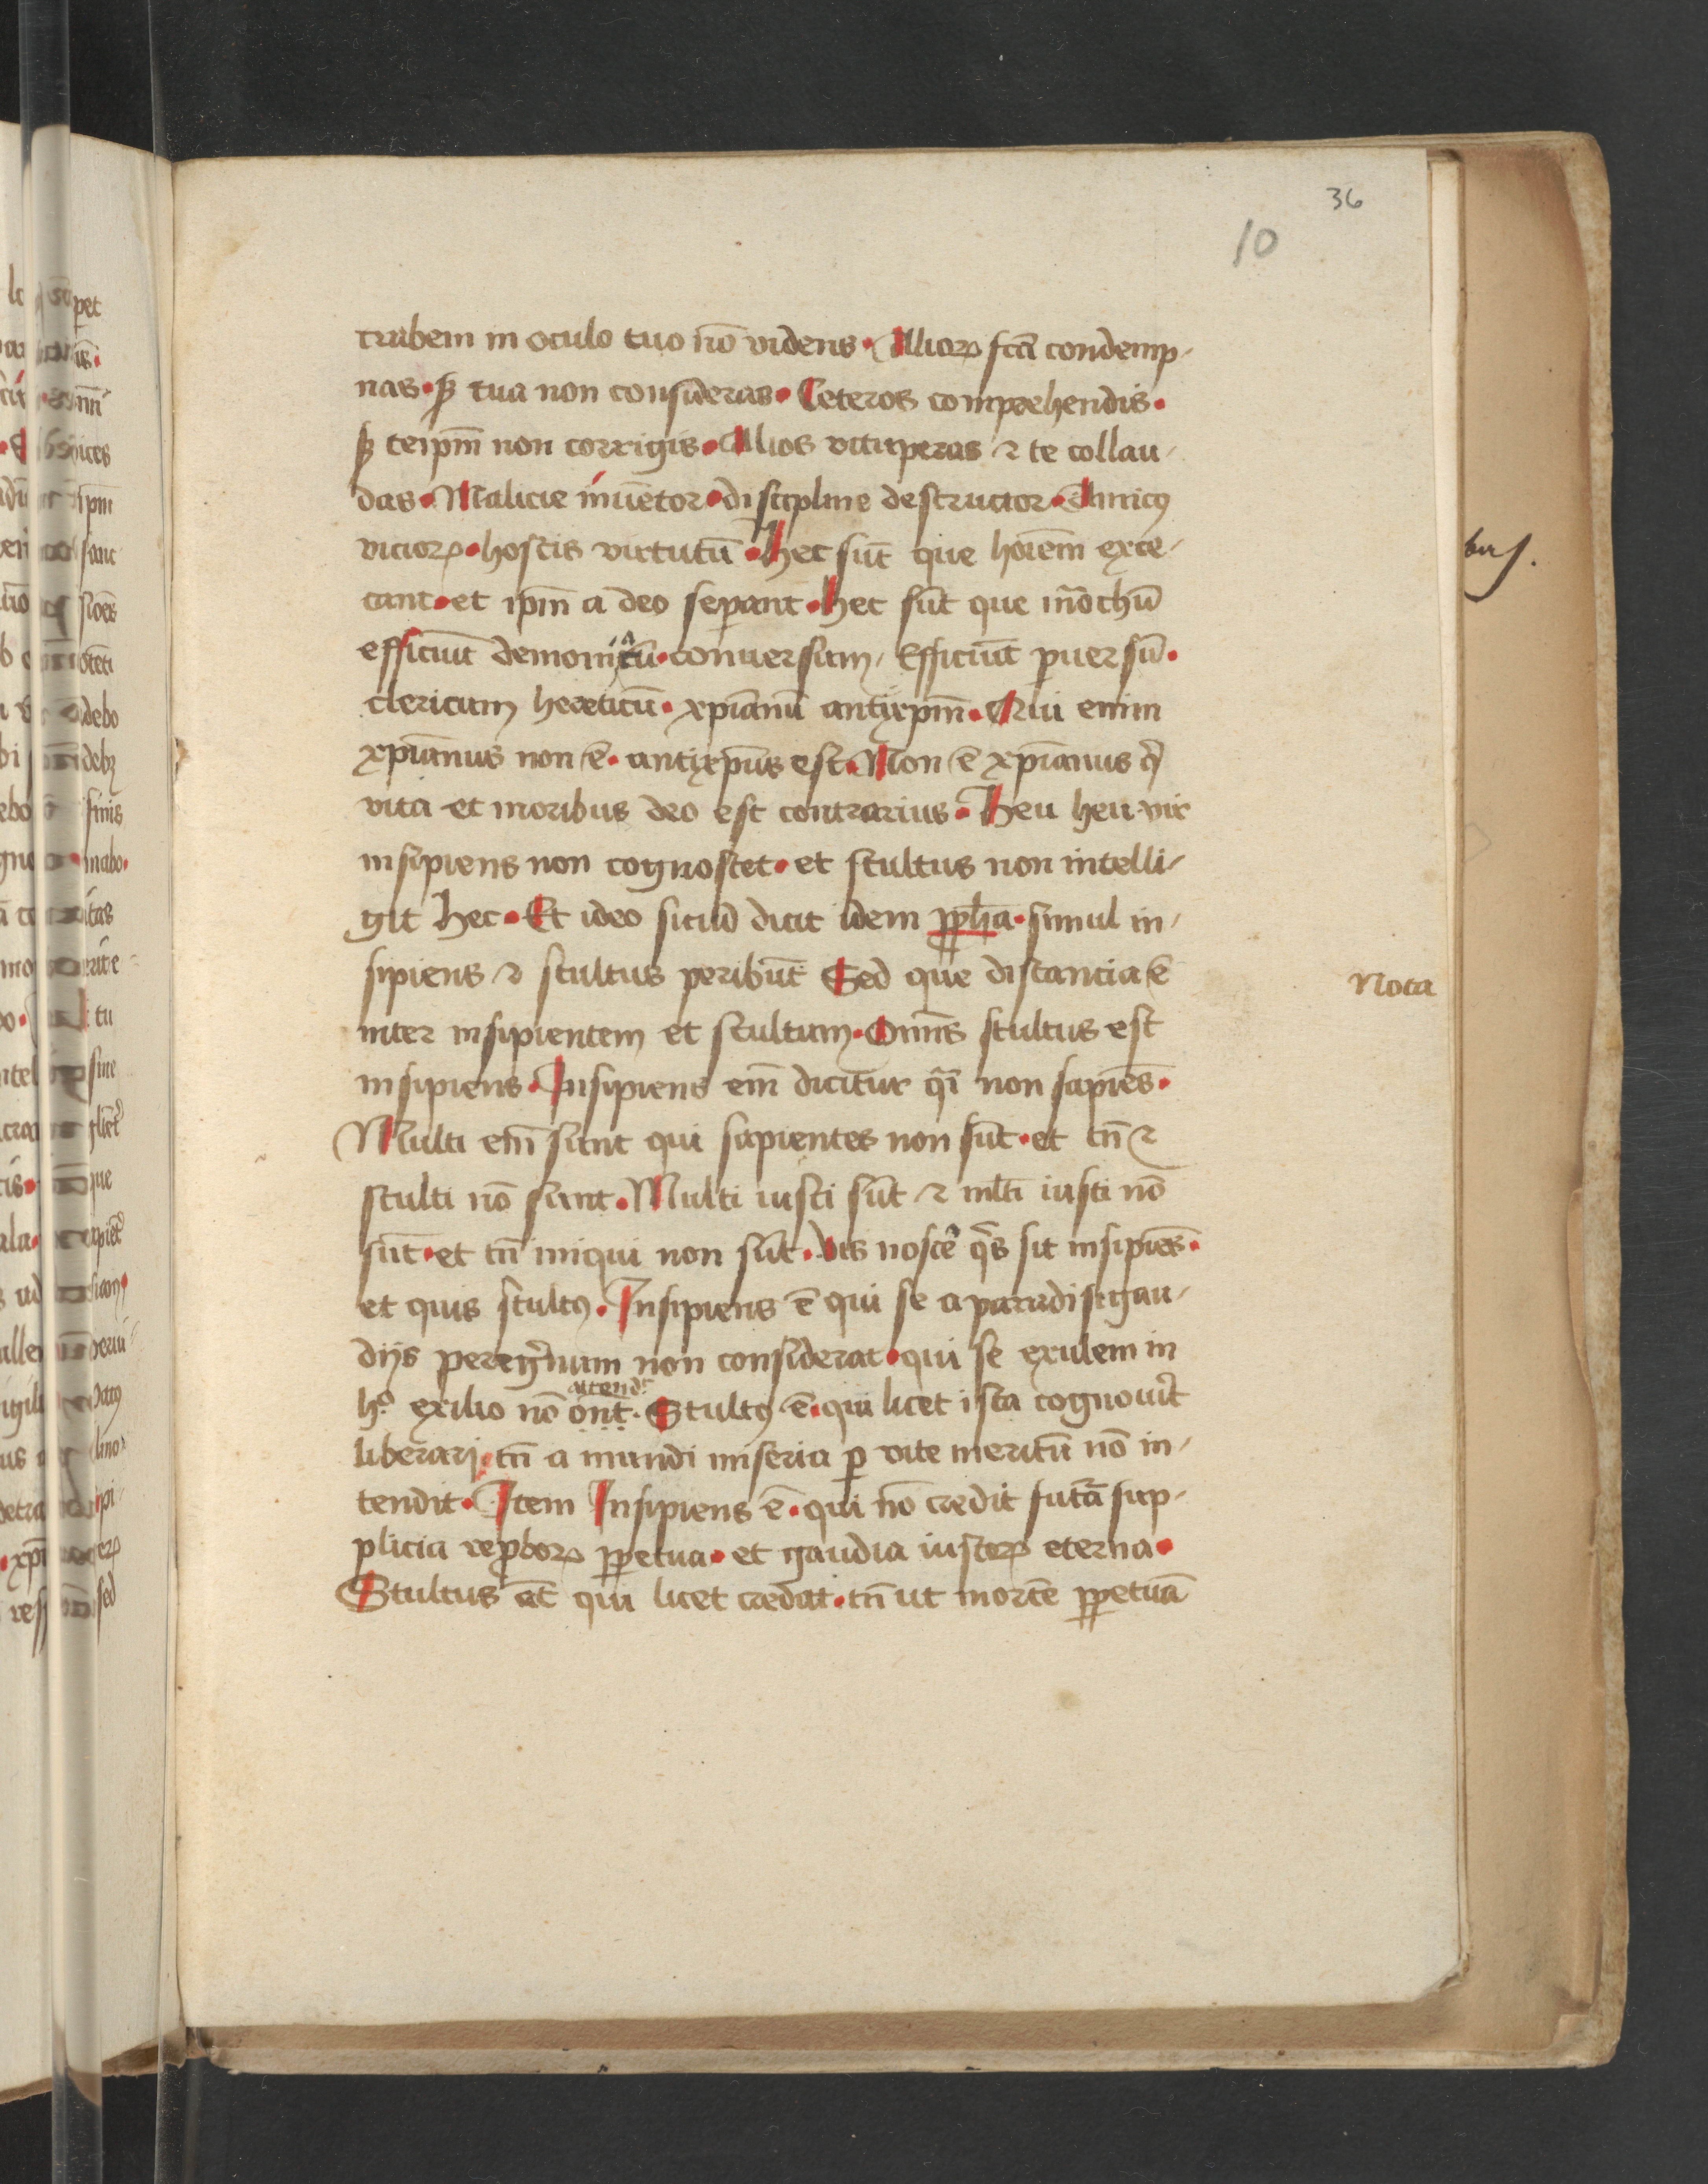 36
10
trabem in oculo tuo nō videns. Alioꝝ fcā condemp-
nas. sꝫ tua non consideras. Ceteros comprehendis.
sꝫ teipm̄ non corrigis. Alios vituperas ⁊ te collau-
das. Malicie inuētor. discipline destructor. Amicꝰ
vicioꝝ. hostis virtutū. Hec sūt que hoīem exce-
cant. et ipm̄ a deo seꝑant. Hec sūt que mōchū
efficiūt demoniacū. conuersum. Efficiūt ꝑuersū.
clericum hereticū. xp̄ianū antixp̄m. Qui enim
xp̄ianus non ē. antixp̄us est. Non ē xp̄ianus qͥ
vita et moribus deo est contrarius. Heu heu vir
insipiens non cognoscet. et stultus non intelli-
git hec. Et ideo sicud dicit idem ꝓpha. simul in-
sipiens ⁊ stultus peribūt Sed que distancia ē
inter insipientem et stultum. Omīs stultus est
insipiens. Insipiens em̄ dicitur q̄i non sapiēs.
Multi em̄ sunt qui sapientes non sūt. et tn̄ ⁊
stulti nō sunt. Multi iusti sūt ⁊ ml̄ti iusti nō
sūt. et tn̄ iniqui non sūt. Vis noscē qͥs sit insipiēs.
et quis stultꝰ. Insipiens ē qui se a paradisi gau-
diis peregͥnum non considerat. qui se exulem in
attend
hͦ exilio nō. Stultꝰ ē. qui licet ista cognouīt
liberari. tn̄ a mundi miseria ꝑ vite meritū nō in-
tendit. Item Insipiens ē. qui nō credit futā sup-
plicia reꝓboꝝ ꝑpetua. et gaudia iustoꝝ eterna.
Stultus at̄ qui licet credat. tn̄ ut mortē ꝑpetuā
Nota